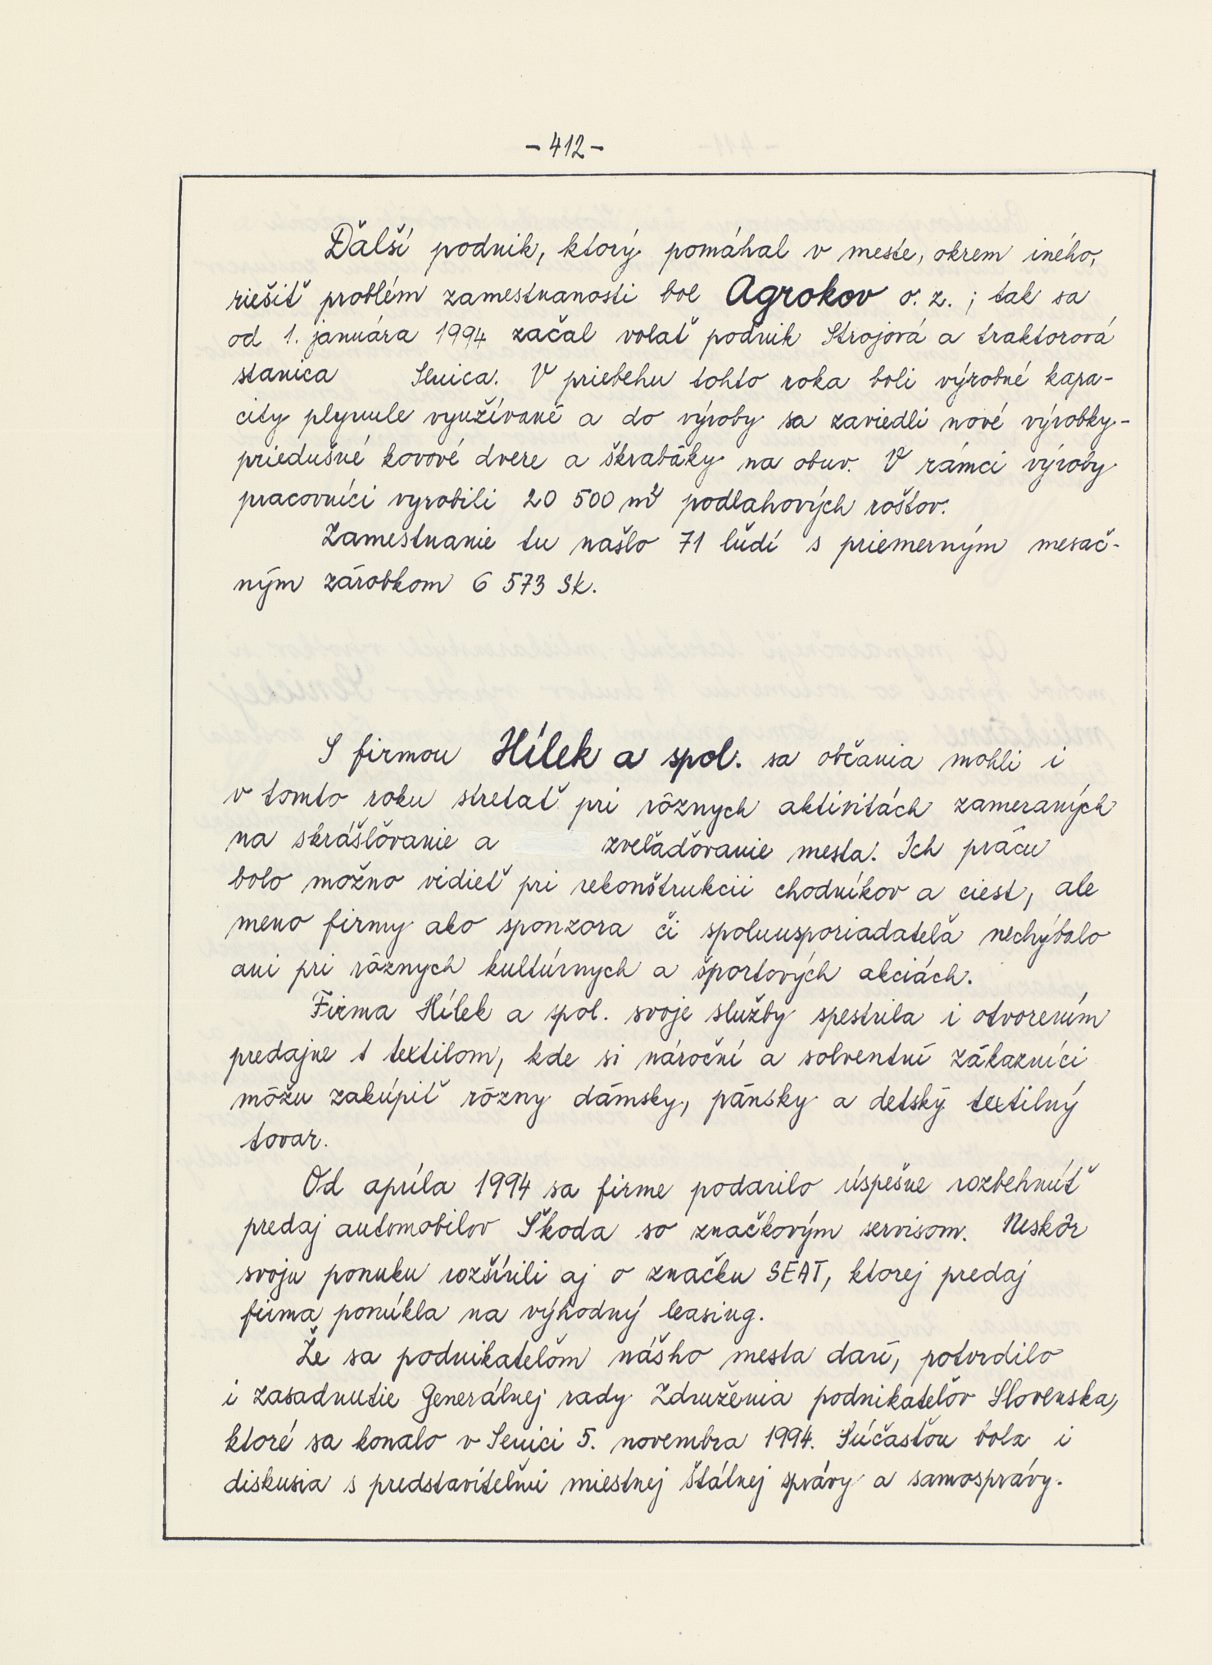 - 412 -
Ďalší podnik, ktorý pomáhal v meste, okrem iného,
riešiť problém zamestnanosti bol Agrokov o. z. ; tak sa
od 1. januára 1994 začal volať podnik Strojová a traktorová
stanica Senica. V priebehu tohto roka boli výrobné kapa-
city plynule využívané a do výroby sa zaviedli nové výrobky -
priedušné kovové dvere a škrabáky na obuv. V rámci výroby
pracovníci vyrobili 20 500 m² podlahových roštov.
Zamestnanie tu našlo 71 ľudí s priemerným mesač-
ným zárobkom 6 573 Sk.
S firmou Hílek a spol. sa občania mohli i
v tomto roku stretať pri rôznych aktivitách zameraných
na skrášľovanie a zveľaďovanie mesta. Ich prácu
bolo možno vidieť pri rekonštrukcii chodníkov a ciest, ale
meno firmy ako sponzora či spoluusporiadateľa nechýbalo
ani pri rôznych kultúrnych a športových akciách.
Firma Hílek a spol. svoje služby spestrila i otvorením
predajne s textilom, kde si nároční a solventní zákazníci
môžu zakúpiť rôzny dámsky, pánsky a detský textilný
tovar.
Od apríla 1994 sa firme podarilo úspešne rozbehnúť
predaj automobilov Škoda so značkovým servisom. Neskôr
svoju ponuku rozšírili aj o značku SEAT, ktorej predaj
firma ponúkla na výhodný leasing.
Že sa podnikateľom nášho mesta darí, potvrdilo
i zasadnutie Generálnej rady Združenia podnikateľov Slovenska,
ktoré sa konalo v Senici 5. novembra 1994. Súčasťou bola i
diskusia s predstaviteľmi miestnej štátnej správy a samosprávy.